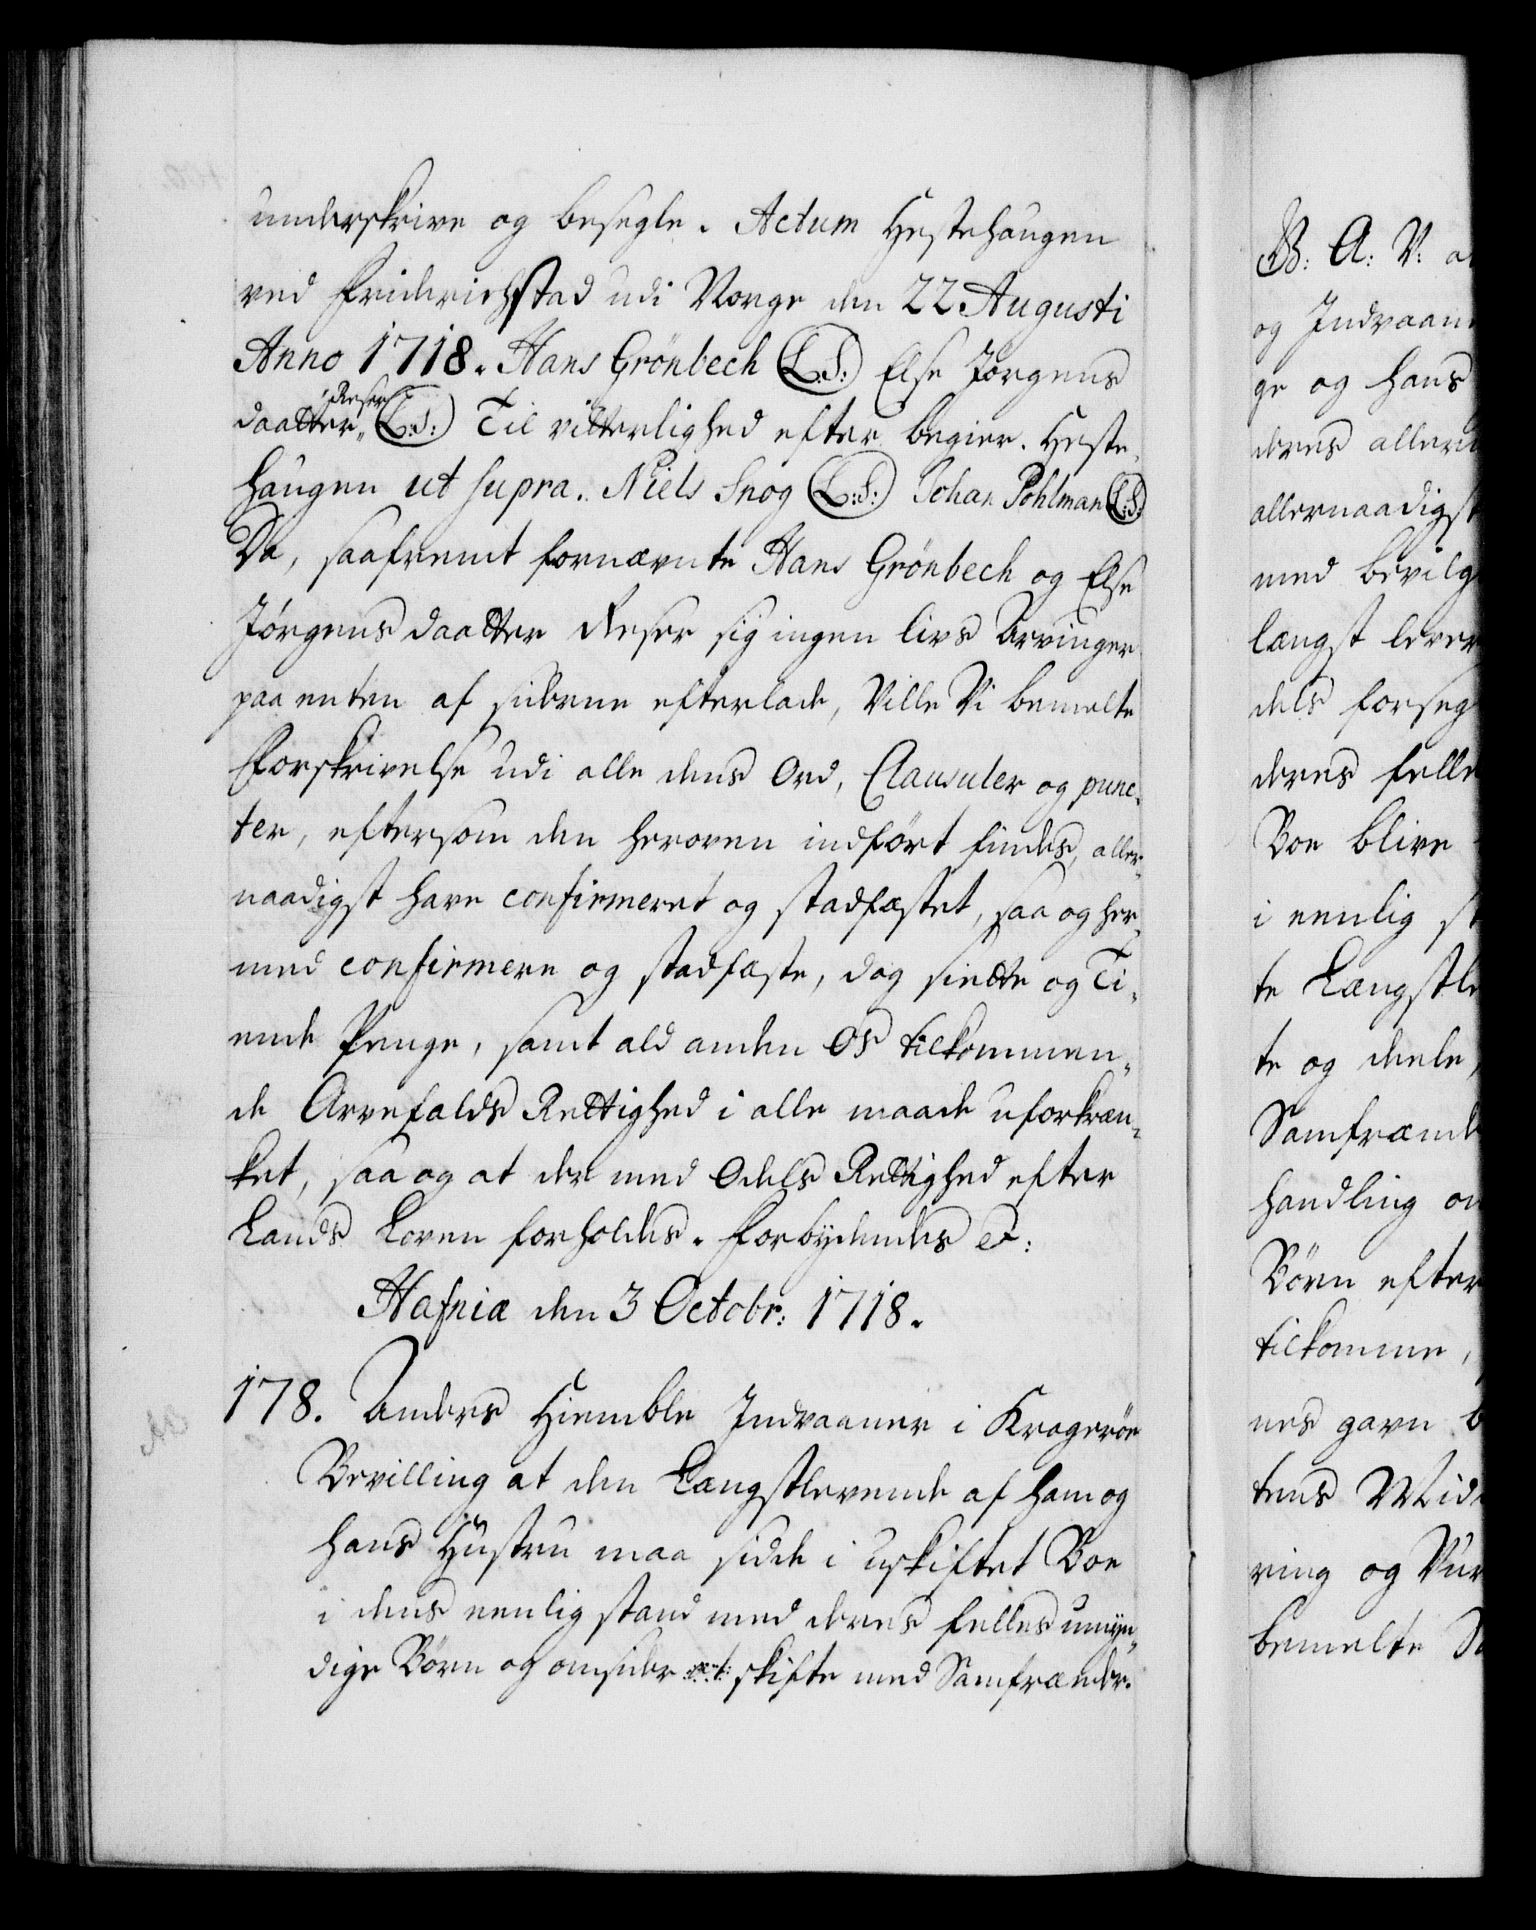 underskrive og besegle. Actum Hestehaugen
ved Friderichstad udi Norge den 22 Augusti
Anno 1718. Hans Grönbech (L.S:) Else Jørgens
daatter Reser (L:S:) Til vitterlighed efter begier. Heste-
haugen ut supra. Niels Snog (L:S:) Johan Pohlman (L:S:)
Da, saafremt fornævnte Hans Grönbech og Else
Jørgens daatter Reser sig ingen livs Arvinger
paa enten af siderne efterlade, Ville Vi bemelte
Forskrivelse udi alle dens Ord, Clausuler og punc-
ter, eftersom den heroven indført findes, aller-
naadigst have confirmeret og stadfæstet, saa og her-
med confirmere og stadfæste, dog siette og Ti-
ende Penge, samt ald anden Os tilkommen-
de Arvefalds Rettighed i alle maade uforkræn-
ket, saa og at der med Odels Rettighed efter
Lands Loven forholdes. Forbydendes etc:
Hafniæ den 3 Octobr: 1718.
178. Anders Hiemble Indvaaner i Kragerøe
Bevilling at den Længstlevende af ham og
hans Hüstru maa sidde i uskiftet Boe
i dens eenlig stand med deres felles umyn-
dige Börn og omsider skifte med Samfrænder.
B: A: V: a
og Indvaan
ge og hans
deres alleru
allernaadigst
med bevilg
længst lever
dels forseg
deres felle
Boe blive
i eenlig st
te Længstle
te og deele,
Samfrænde
handling on
Börn efter
tilkomme,
nes gavn b
tens Mid
ring og Vur
bemelte S